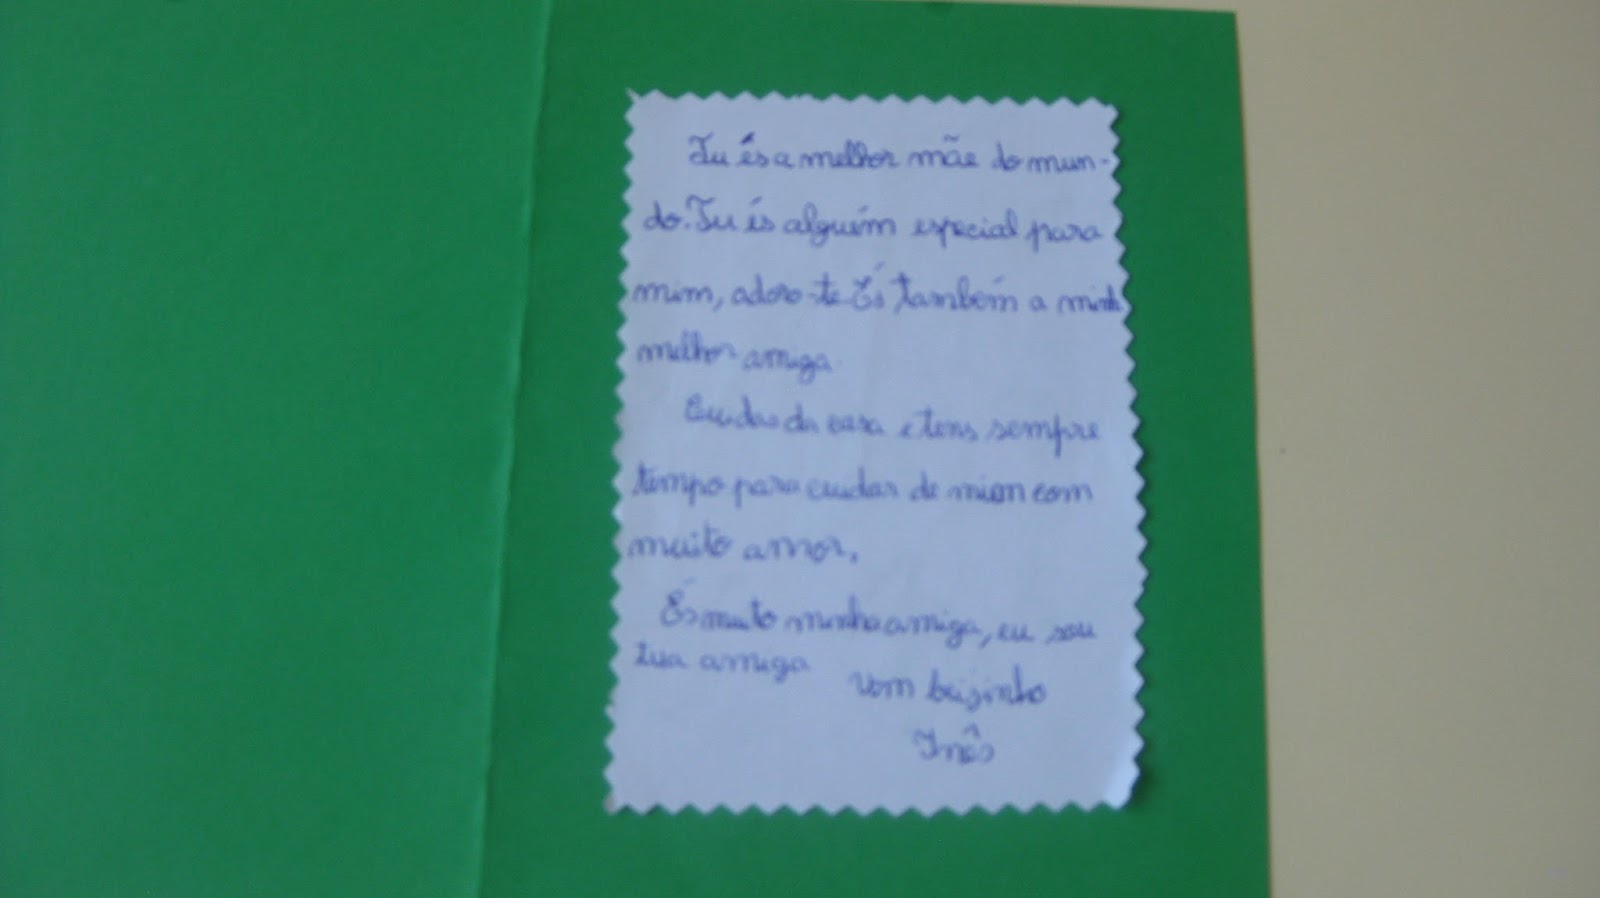 Tu és a melhor mãe do mun-
do. Tu és alguém especial para
mim, adoro-te. És também a minh
melhor amiga.
Cuidas da casa e tens sempre
tempo para cuidar de mim com
muito amor.
És muito minha amiga, eu sou
tua amiga
Um beijinho
Inês